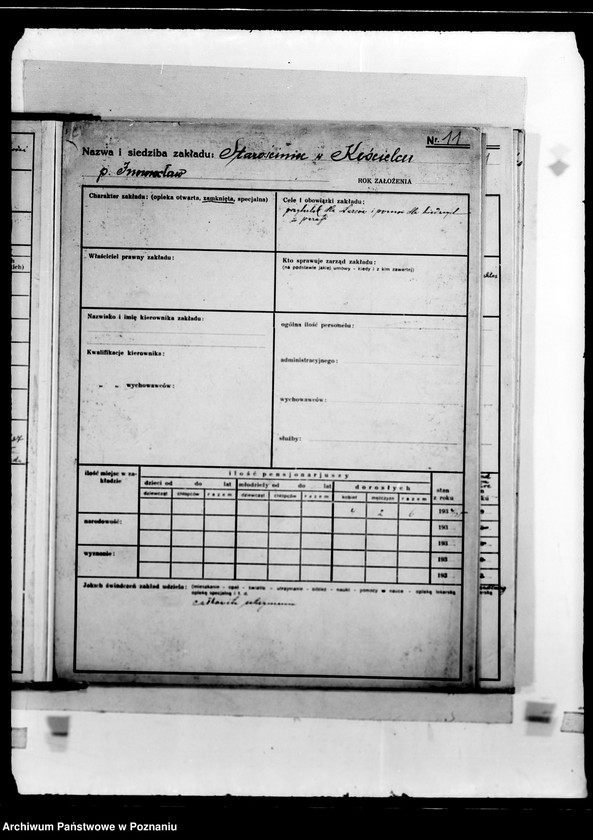 Nr. 11
Nazwa i siedziba zakładu: w Kościelcu
p. Inowrocław
ROK ZAŁOŻENIA
Charakter zakładu: (opieka otwarta, zamknięta, specjalna)
Cele i obowiązki zakładu:
przytułek dla i pomoc dla biednych
z parafji
Właściciel prawny zakładu:
Kto sprawuje zarząd zakładu:
(na podstawie jakiej umowy - kiedy i z kim zawartej)
Nazwisko i imię kierownika zakładu:
ogólna ilość personelu:
Kwalifikacje kierownika:
administracyjnego:
„ „ wychowawców:
wychowawców:
służby:
ilość miejsc w zakładzie
ilość pensjonarjuszy
dzieci od do lat młodzieży od do lat dorosłych stan z roku
dziewcząt chłopców razem dziewcząt chłopców razem kobiet mężczyzn razem
2 6 193
narodowość: 193
193
wyznanie: 193
193
Jakich świadczeń zakład udziela: (mieszkanie - opał - światło - utrzymanie - odzież - nauki - pomocy w nauce - opieką lekarską
opieką specjalną i t. d.
całkowite utrzymanie
Archiwum Państwowe w Poznaniu